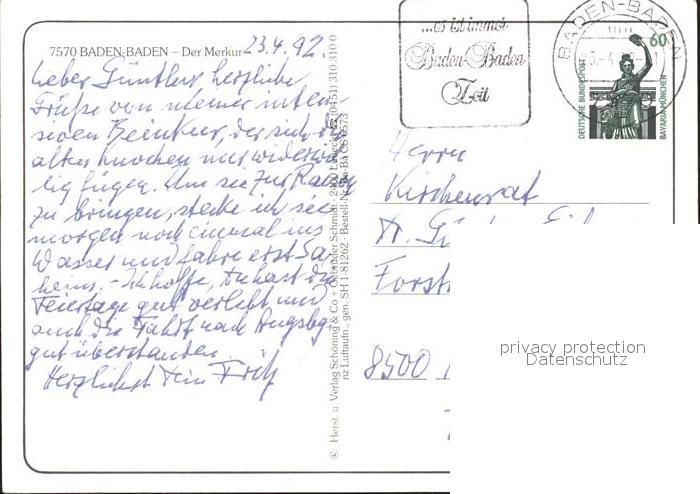 7570 BADEN-BADEN – Der Merkur
23.4.92.
Lieber Günther, herzliche
Grüße von meiner inten
siven Beinkur, der sich die
alten Knochen nur widerwil
lig fügen. Um sie zur Raison
zu bringen, stecke ich sie
morgen noch einmal ins
Wasser und fahre erst Sa
heim. - Ich hoffe, Du hast die
Feiertage gut verlebt und
auch die Fahrt nach Augsbg.
gut überstanden.
Herzlichst Dein Fritz
© Herst. u. Verlag Schöning & Co + Gebrüder Schmidt · 2400 Lübeck · (0451) 310 310 0
nz Luftaufn., gen. SH 1-81262 · Bestell-Nr.
...es ist immer
Baden-Baden
Zeit
BADEN-BADEN
60
DEUTSCHE BUNDESPOST
BAVARIA MÜNCHEN
Herrn
Kirchenrat
Dr.
Forst
8500
privacy protection
Datenschutz